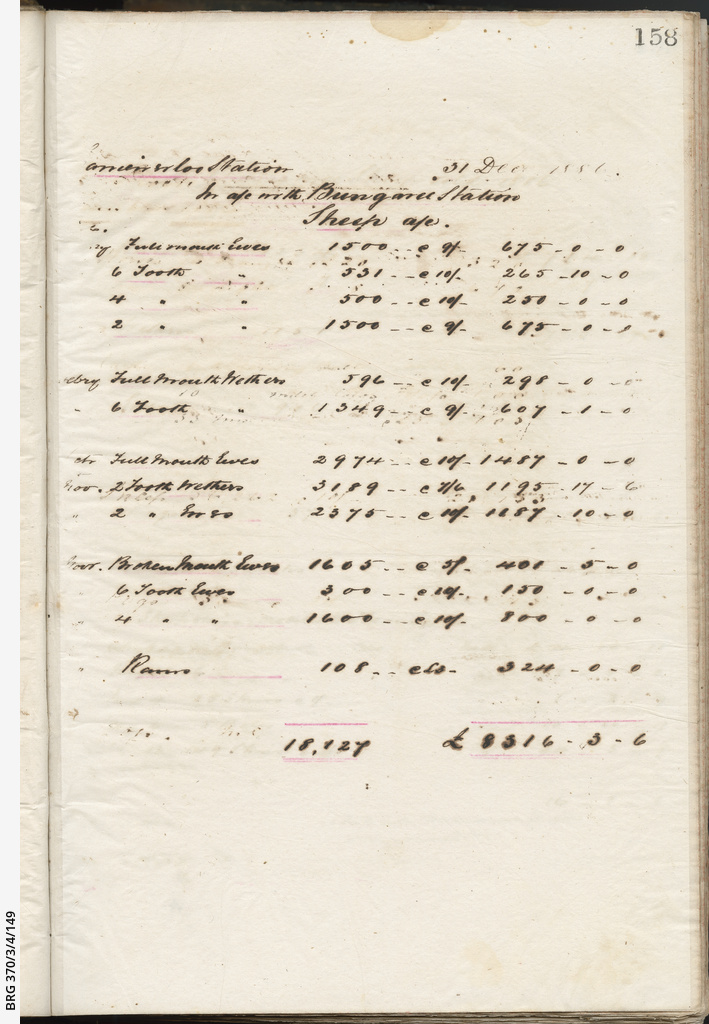 158
Station 31 Dec
In a/c with Bungaree Station
Sheep a/c.
Full mouth Ewes 1500 .. @ 9/. 675 - 0 - 0
6 Tooth " 531 .. @ 10/. 265 - 10 - 0
4 " " 500 .. @ 10/. 250 - 0 - 0
2 " " 1500 .. @ 9/. 675 - 0 - 0
dry Full Mouth Wethers 596 .. @ 10/. 298 - 0 - 0
" 6 Tooth " 1349 .. @ 9/. 607 - 1 - 0
Full mouth Ewes 2974 .. @ 10/. 1487 - 0 - 0
2 Tooth Wethers 3189 .. @ 7/6 1195 - 17 - 6
" 2 " Ewes 2375 .. @ 10/. 1187 - 10 - 0
Broken Mouth Ewes 1605 .. @ 5/. 401 - 5 - 0
6 Tooth Ewes 300 .. @ 10/. 150 - 0 - 0
" 4 " " 1600 .. @ 10/. 800 - 0 - 0
" Rams 108 .. 324 - 0 - 0
18,127 £ 8316 - 3 - 6
BRG 370/3/4/149